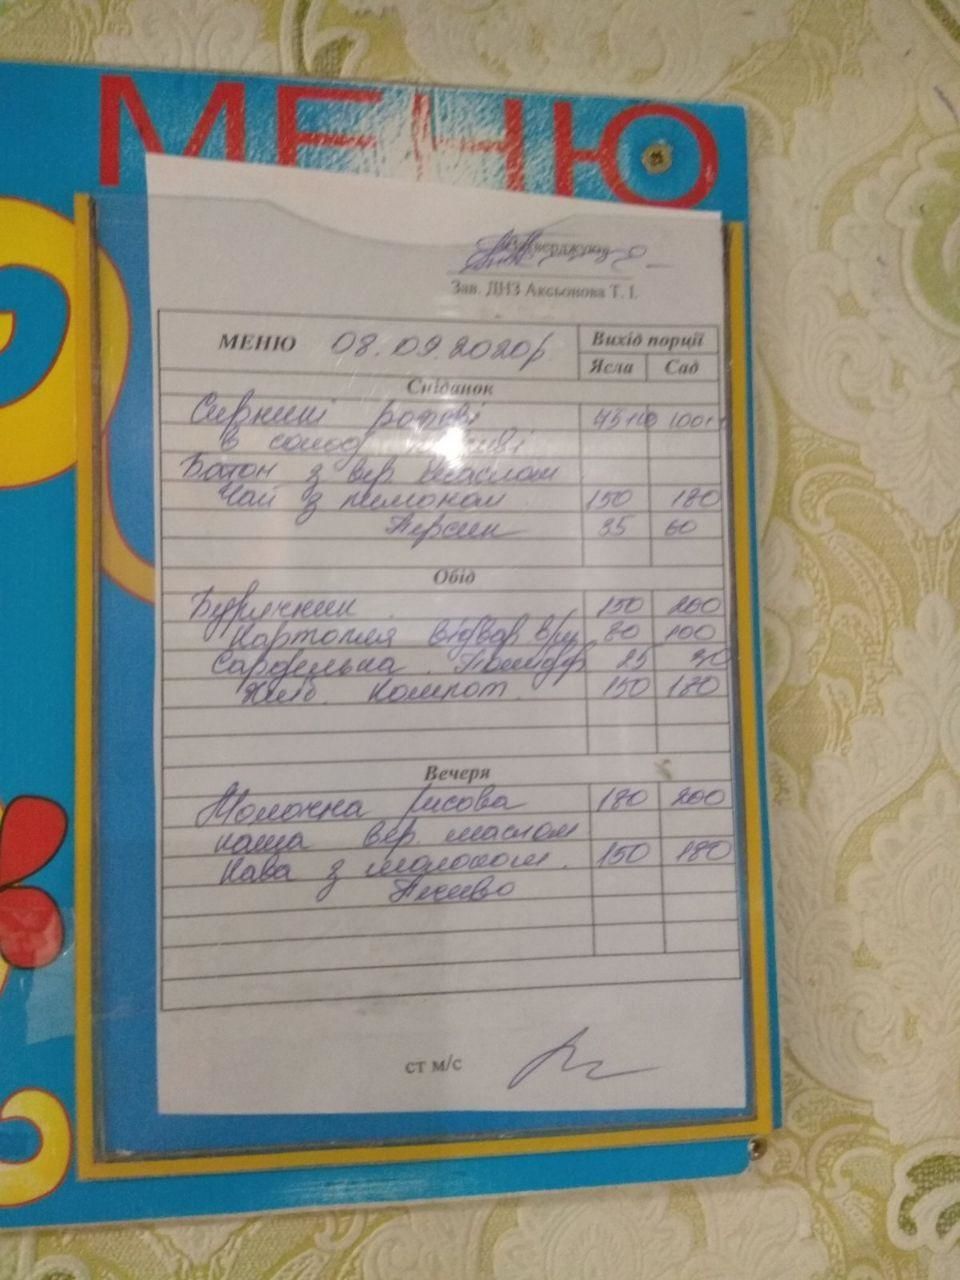 МЕНЮ
Затверджую
Зав. ДНЗ Аксьонова Т. І.
МЕНЮ 08.09.2020р Вихід порції
Ясла Сад
Сніданок
Сирники
в солод
Батон з вер. маслом
Чай з лимоном 150 180
Персик 35 60
Обід
Бурячник 150 200
Картопля відвар 80 100
Сарделька Помідор 25
Хліб Компот 150 180
Вечеря
Молочна рисова 180 200
каша вер. маслом
Кава з молоком 150 180
Печиво
ст м/с